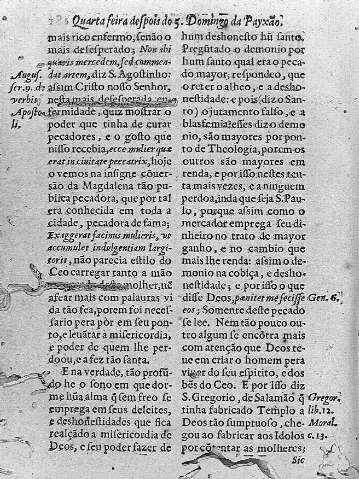 Quarta feira despois do 5. Domingo da Payxão.
mais rico enfermo, senão o
mais desesperado; Non ibi
quæris mercedem, sed commen-
das artem, diz S. Agostinho:
assim Cristo nosso Senhor,
nesta mais desesperada en-
fermidade, quiz mostrar o
poder que tinha de curar
peccadores, e o gosto que
nisso recebia, ecce mulier quæ
erat in civitate peccatrix, hoje
o vemos na insigne côver-
são da Magdalena tão pu-
blica pecadora, que por tal
era conhecida em toda a
cidade, pecadora de fama;
Exaggerat facinus mulieris, ut
accumulet indulgentiam largi-
toris, não parecia estilo do
Ceo carregar tanto a mão
molher, né
afear mais com palauras vi
da tão fea, porem foi neces-
sario pera pòr em seu pon-
to, e leuãtar a misericordia,
e poder de quem lhe per-
doou, e a fez tão santa.
E na verdade, tão profũ-
do he o sono em que dor-
me hũa alma q̃ sem freo se
emprega em seus deleites,
e deshonestidades que fica
realçado a misericordia de
Deos, e seu poder fazer de
August.
ser. 9. de
verbis
Aposto-
li.
hum deshonesto hũ santo.
Pregũtado o demonio por
hum santo qual era o peca-
do mayor, respondeo, que
o reter o alheo, e a desho-
nestidade; e pois (diz o San-
to) o jutamento falso, e a
blasfemia? esses diz o demo
nio, são mayores por pon-
to de Theologia, porem os
outros são mayores em
renda, e por isso nestes ten-
ta mais vezes, e a ninguem
perdoa, inda que seja S. Pau-
lo, porque assim como o
mercador emprega seu di-
nheiro no trato de mayor
ganho, e no cambio que
mais lhe renda: assim o de-
monio na cobiça, e desho-
nestidade; e por isso o que
disse Deos, pœnitet me fecisse
eos; Somente deste pecado
se lee. Nem tão pouco ou-
tro algum se encōtra mais
com atenção que Deos te-
ue em criar o homem pera
viuer do seu espirito, e dos
bēs do Ceo. E por isso diz
S. Gregorio, de Salamão q̃
tinha fabricado Templo a
Deos tão sumptuoso, che-
gou ao fabricar aos Idolos
por cōtentar as molheres;
Gen. 6.
Gregor.
lib. 12.
Moral.
c. 13.
Sic